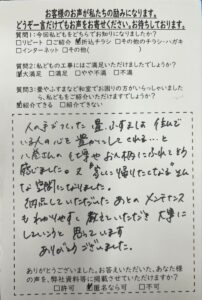 お客様のお声が私たちの励みになります。
どうぞ一言だけでもお声をお寄せください。お待ちしております。
質問1:今回私どもをどちらでお知りになりましたか？
□リピート □ご紹介 折込チラシ □その他のチラシ・ハガキ
□インターネット □その他(
質問2:私どもの工事にはご満足いただけましたでしょうか？
大満足 □満足 □やや不満 □不満
質問3:畳やふすまなど和室でお困りの方がいらっしゃいましたら、私どもをご紹介いただけますでしょうか？
紹介できる □紹介できない
人の手でつくった畳、ふすまは
いる人の心を豊かにしてくれる…と
お人柄にふれそう
感じました。又"家に帰りたくなる"
な空間になりました。
納品していただいたあとのメンテナンス
もわかりやすく教えていただき大事に
していこうと思っています
ありがとうございました。
ありがとうございました。お答えいただいた、あなた様
の声を、弊社資料等に掲載させていただけますか？
□許可 匿名なら可 □不可